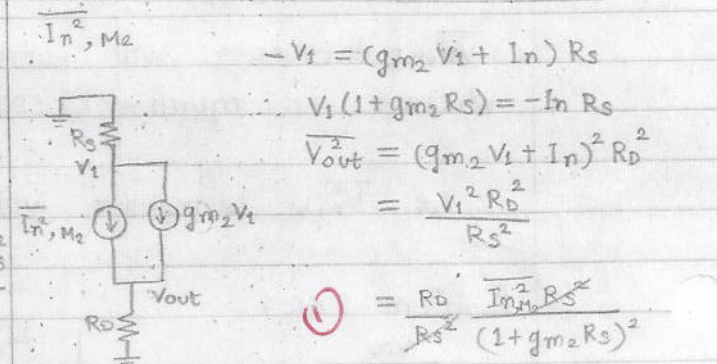 In², M2
-V1 = (gm2 V1 + In) Rs
V1 (1 + gm2 Rs) = -In Rs
Vout² = (gm2 V1 + In)² RD²
= V1² RD² / Rs²
= RD / Rs² In,M2² Rs² / (1 + gm2 Rs)²
Rs
V1
In², M2
gm2 V1
Vout
RD
1